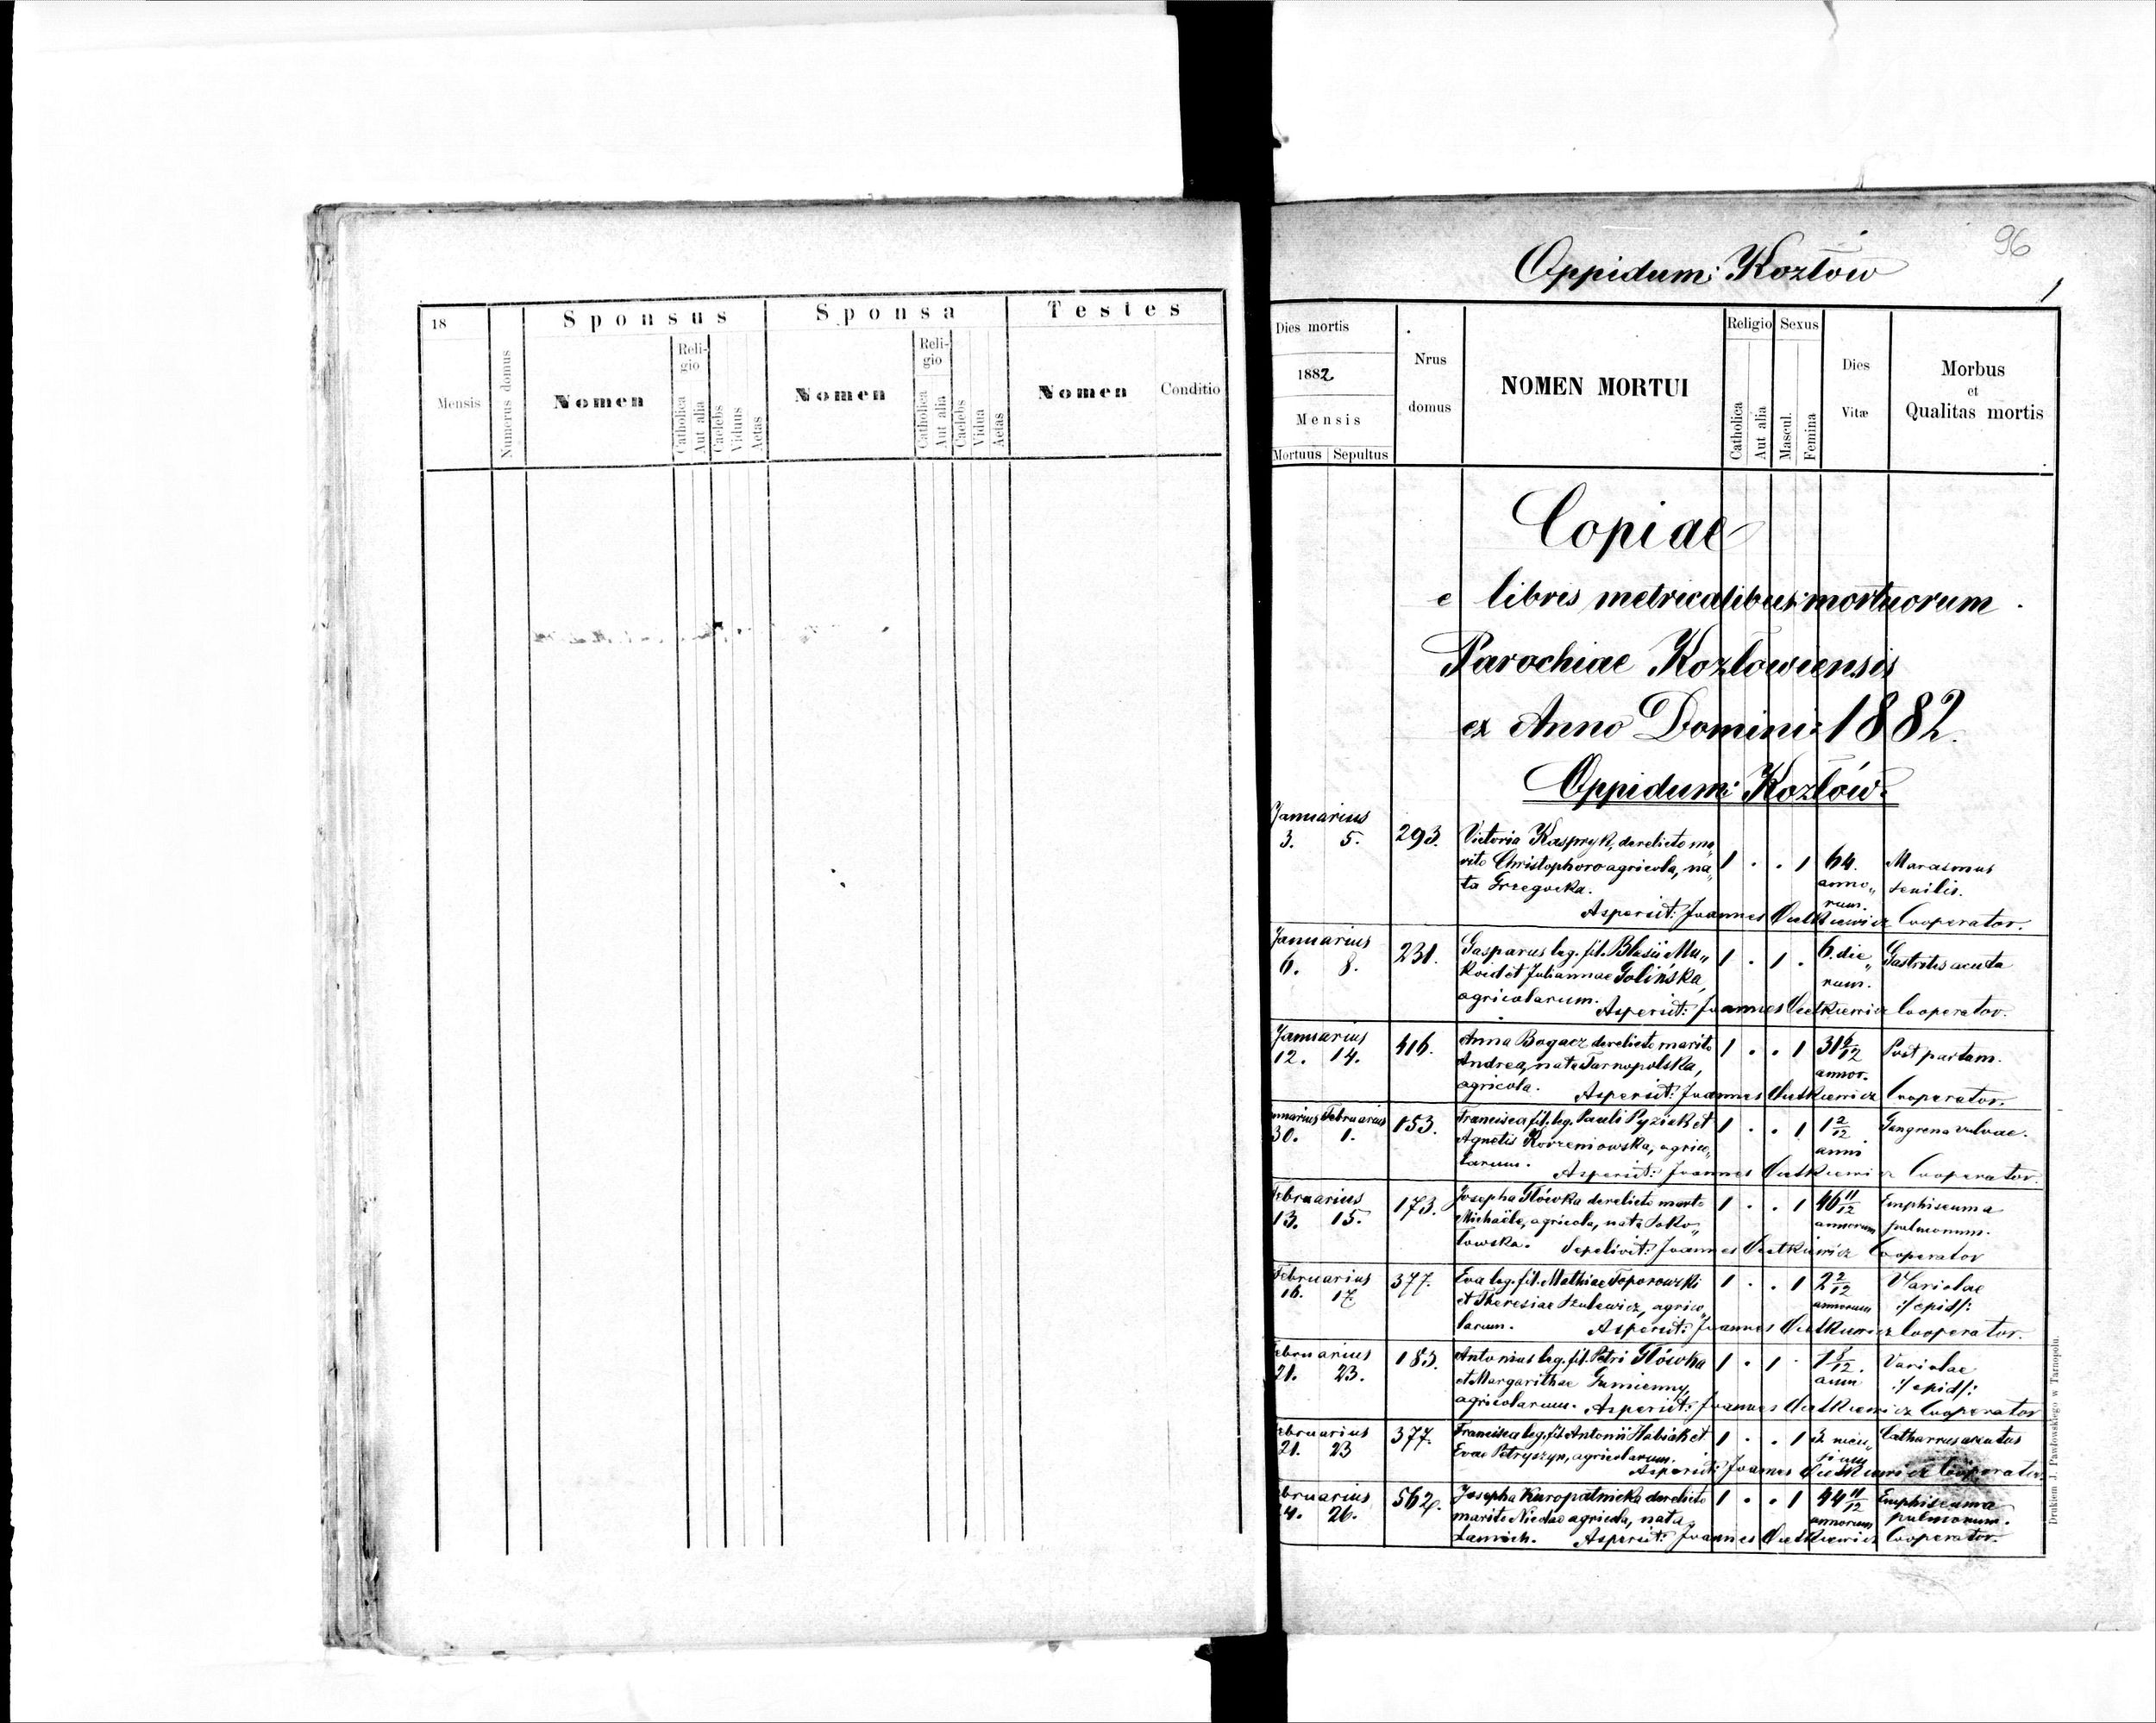 18
Mensis
Numerus domus
Sponsus
Nomen
Reli-
gio
Catholica
Aut alia
Caelebs
Viduus
Aetas
Sponsa
Nomen
Reli-
gio
Catholica
Aut alia
Caelebs
Vidua
Aetas
Testes
Nomen
Conditio
96
Oppidum: Kozłow
1
Dies mortis
1882
Mensis
Mortuus Sepultus
Nrus
domus
NOMEN MORTUI
Religio
Catholica
Aut alia
Sexus
Mascul.
Femina
Dies
Vitæ
Morbus
et
Qualitas mortis
Copiae
e libris metricalibus mortuorum
Parochiae Kozłowiensis
ex Anno Domini: 1882.
Oppidum: Kozłów.
Januarius
3. 5. 293. Victoria Kaspryk, derelicto ma„
rito Christophoro agricola, na„ 1 . . 1 64. Marasmus
ta Grzegocka. anno„ senilis.
rum.
Aspersit: Joannes Cooperator.
Januarius
6. 8. 231. Gasparus leg. fil. Blasii Mu„ 1 . 1 . 6. die„ Gastritis acuta
et Juliannae Golińska, rum.
agricolarum. Aspersit: Joannes Cooperator.
Januarius
12. 14. 416. Anna Bogacz derelicto marito 1 . . 1 31 6/12 Post partum.
Andrea, nata Tarnopolska, annor.
agricola. Aspersit: Joannes Cooperator.
nuarius Februarius
30. 1. 153. Francisca fil. leg. Pauli Pyziak et 1 . . 1 1 2/12 Gangrena vulvae.
Agnetis Korzeniowska, agrico„ anni
larum. Aspersit: Joannes Cooperator.
Februarius
13. 15. 173. Josepha Główka derelicto marito 1 . . 1 46 11/12 Emphiseuma
Michaële, agricola, nata Soko„ annorum pulmonum.
lowska. Sepelivit: Joannes Cooperator
Februarius
16. 17. 377. Eva leg. fil. Mathiae Toporowski 1 . . 1 2 2/12 Variolae
et Theresiae Szulewicz, agrico„ annorum :/epid/:
larum. Aspersit: Joannes Cooperator.
ebruarius
21. 23. 183. Antonius leg. fil. Petri Główka 1 . 1 . 1 8/12. Variolae
et Margarithae Gumienny, anni :/epid/:
agricolarum. Aspersit: Joannes Cooperator
ebruarius
21. 23 377. Francisca leg. fil. Antonii et 1 . . 1 3 men„ Catharrus acutus
Evae Petryszyn, agricolarum. sium
Aspersit: Joannes Cooperator.
bruarius
4. 26. 562. Josepha Kuropatnicka derelicto 1 . . 1 44 11/12 Emphiseuma
marito agricola, nata annorum pulmonum.
Aspersit: Joannes Cooperator.
Drukiem J. Pawłowskiego w Tarnopolu.